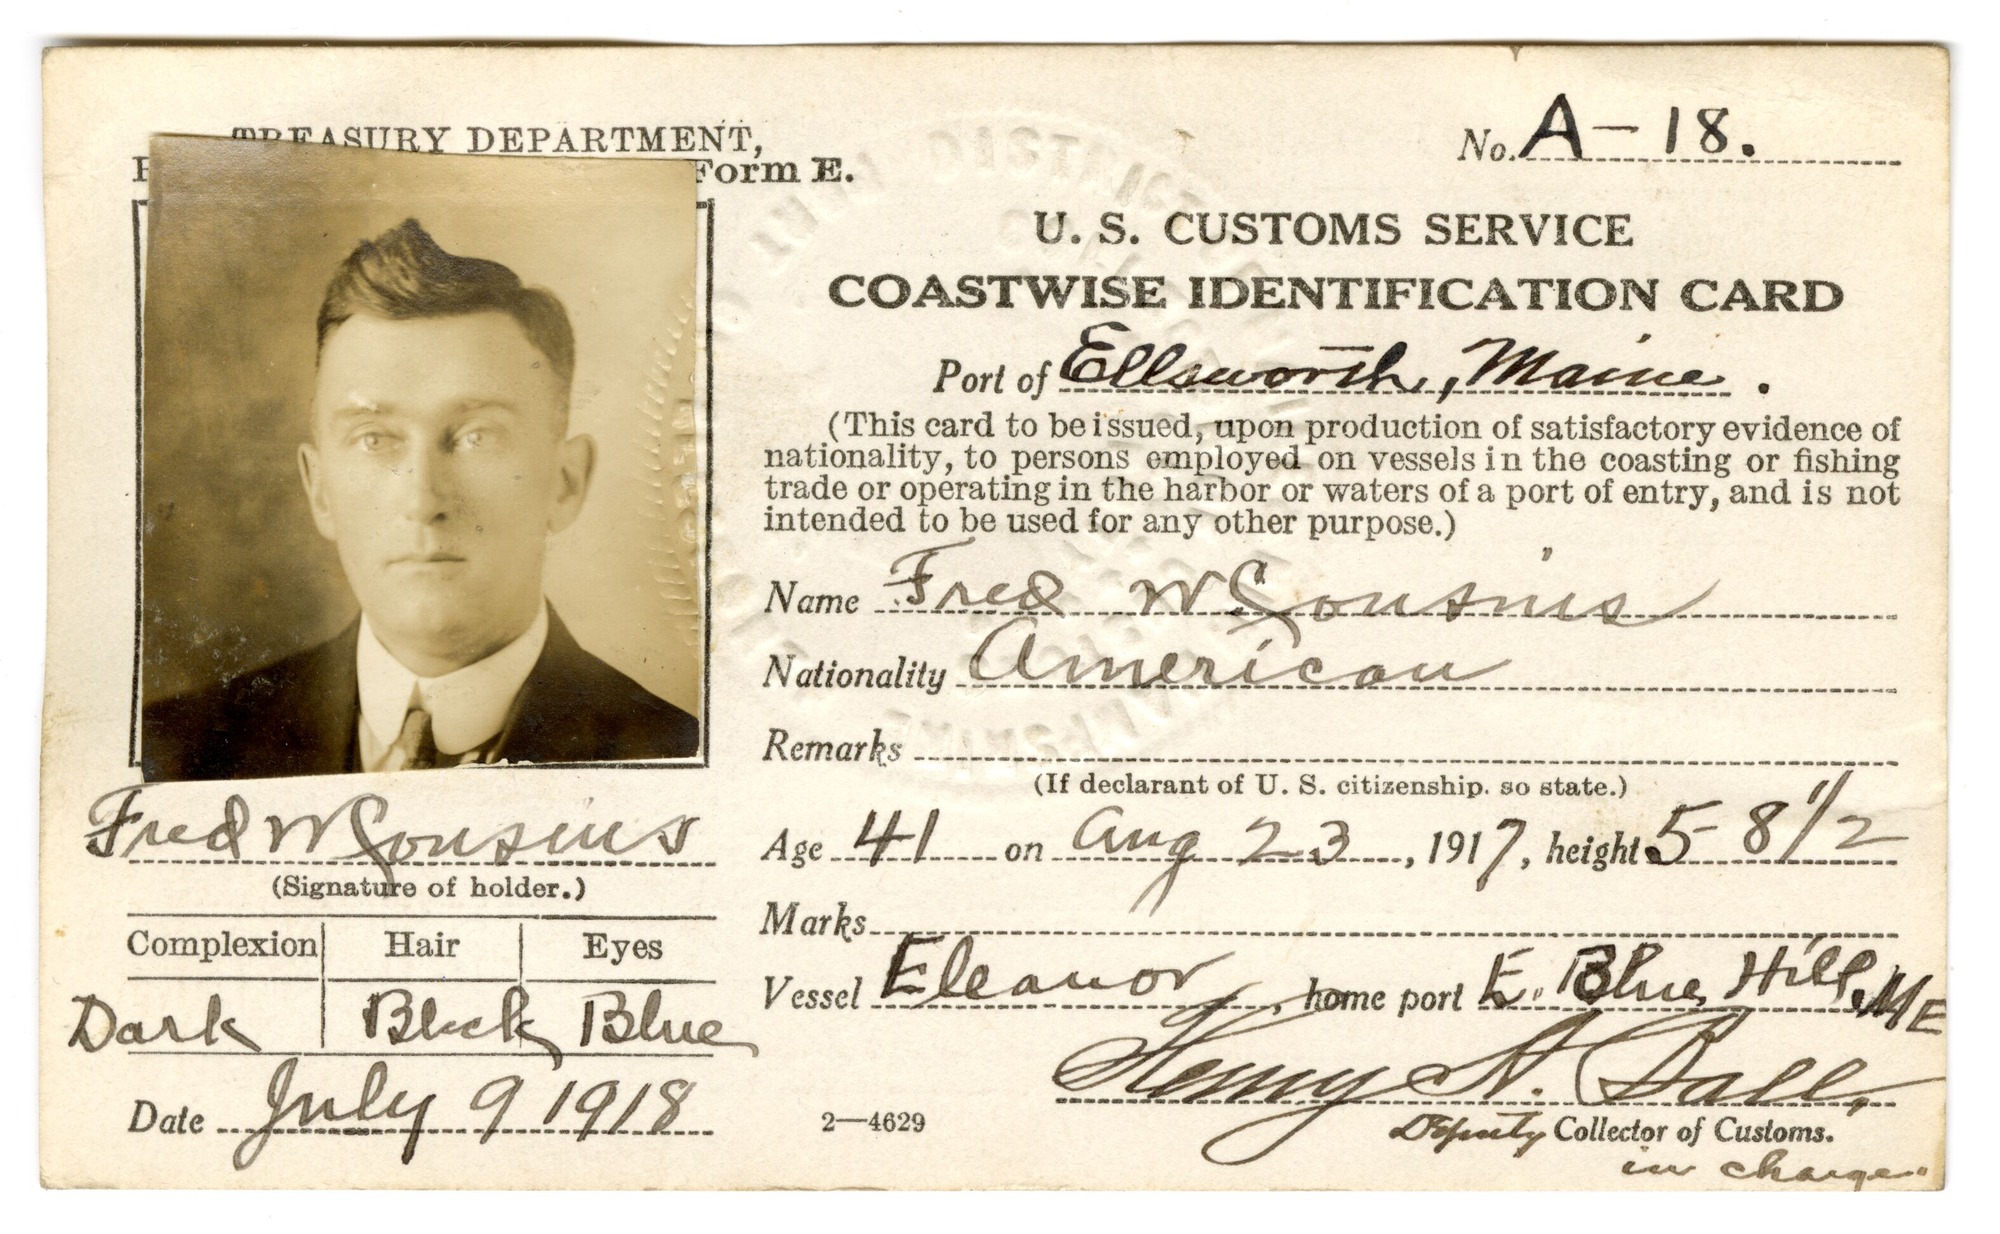 TREASURY DEPARTMENT,
Form E.
No. A-18.
U. S. CUSTOMS SERVICE
COASTWISE IDENTIFICATION CARD
Port of Ellsworth, Maine.
(This card to be issued, upon production of satisfactory evidence of
nationality, to persons employed on vessels in the coasting or fishing
trade or operating in the harbor or waters of a port of entry, and is not
intended to be used for any other purpose.)
Name Fred W Cousins
Nationality American
Remarks
(If declarant of U. S. citizenship. so state.)
Age 41 on Aug 23, 1917, height 5-8 1/2
Marks
Vessel Eleanor, home port E. Blue Hill, ME
Henry N. Dall,
Deputy Collector of Customs.
in charge.
Fred W Cousins
(Signature of holder.)
Complexion Hair Eyes
Dark Black Blue
Date July 9 1918
2—4629